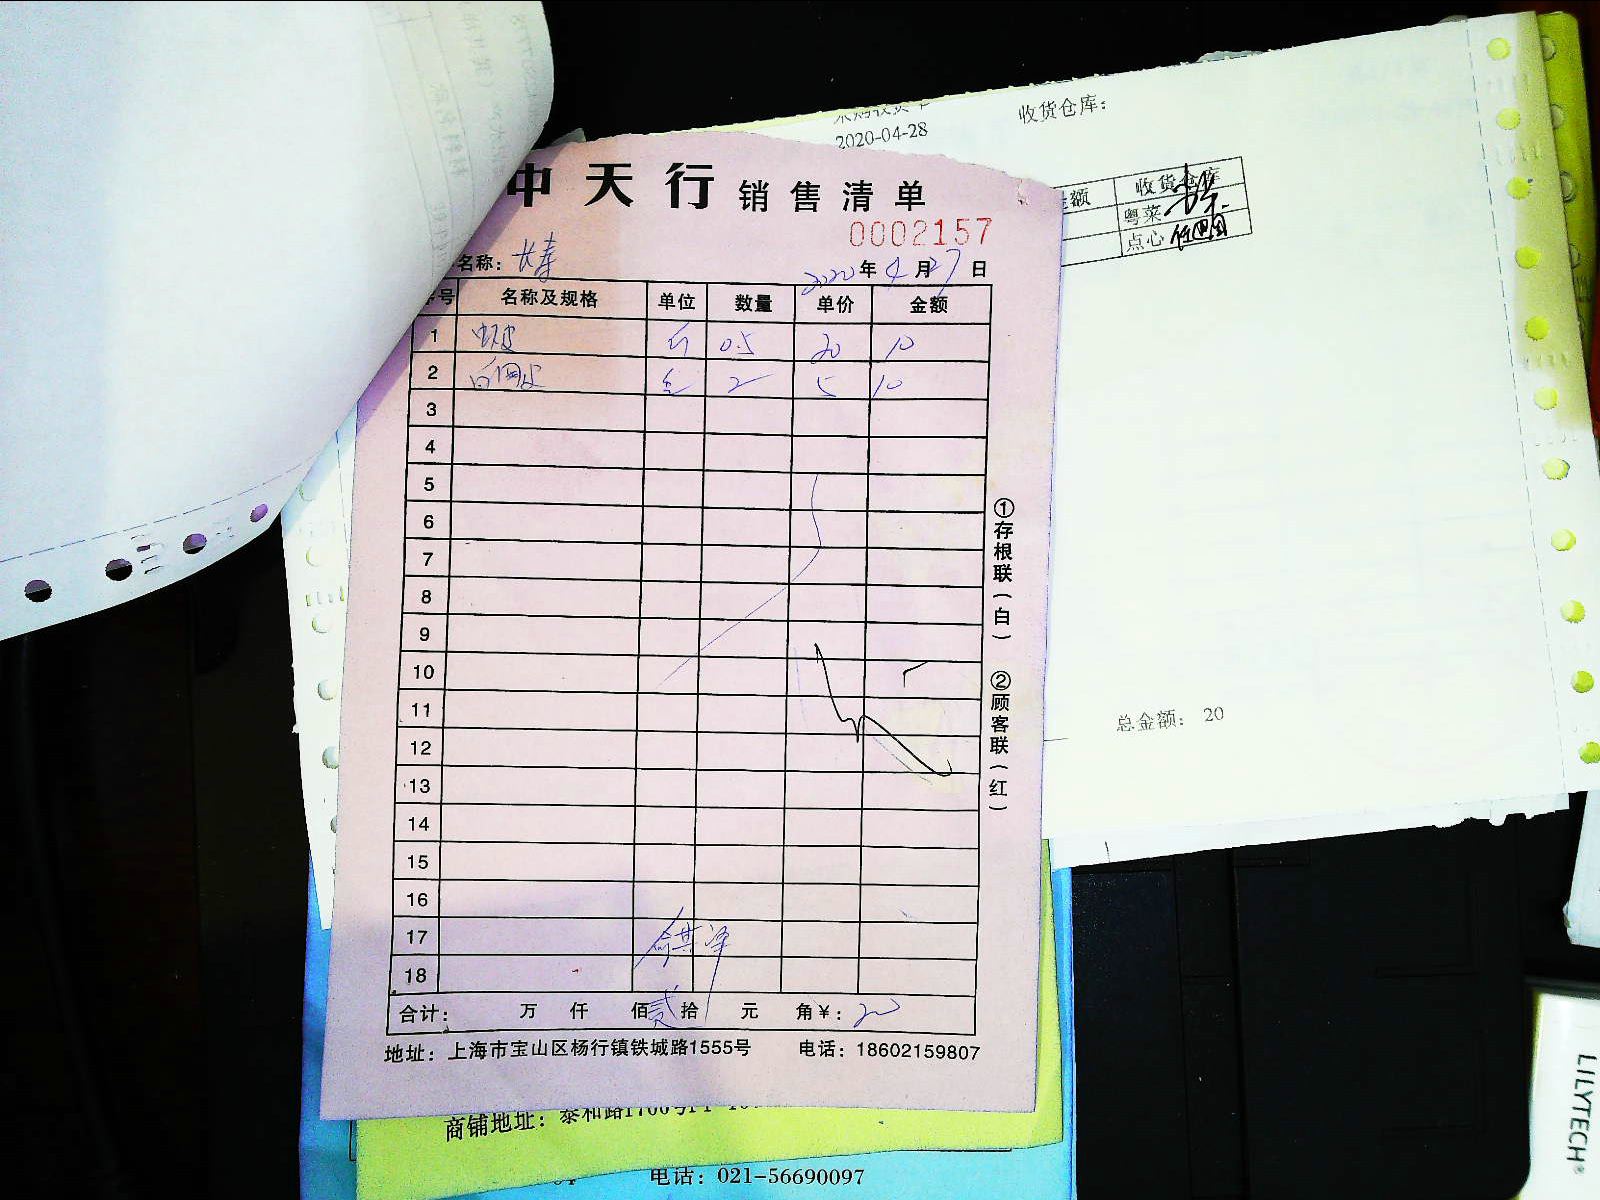 收货仓库：
2020-04-28
额 收货仓库
粤菜
点心
中天行 销售清单
0002157
名称：长寿
2020年4月27日
号 名称及规格 单位 数量 单价 金额
1 虾皮 斤 0.5 20 10
2 2 5 10
3
4
5
6
7
8
9
10
11
12
13
14
15
16
17
18
合计： 万 仟 佰 贰拾 元 角￥：20
地址：上海市宝山区杨行镇铁城路1555号 电话：18602159807
①存根联（白） ②顾客联（红）
总金额： 20
商铺地址：泰和路1700号
电话：021-56690097
LILYTECH®